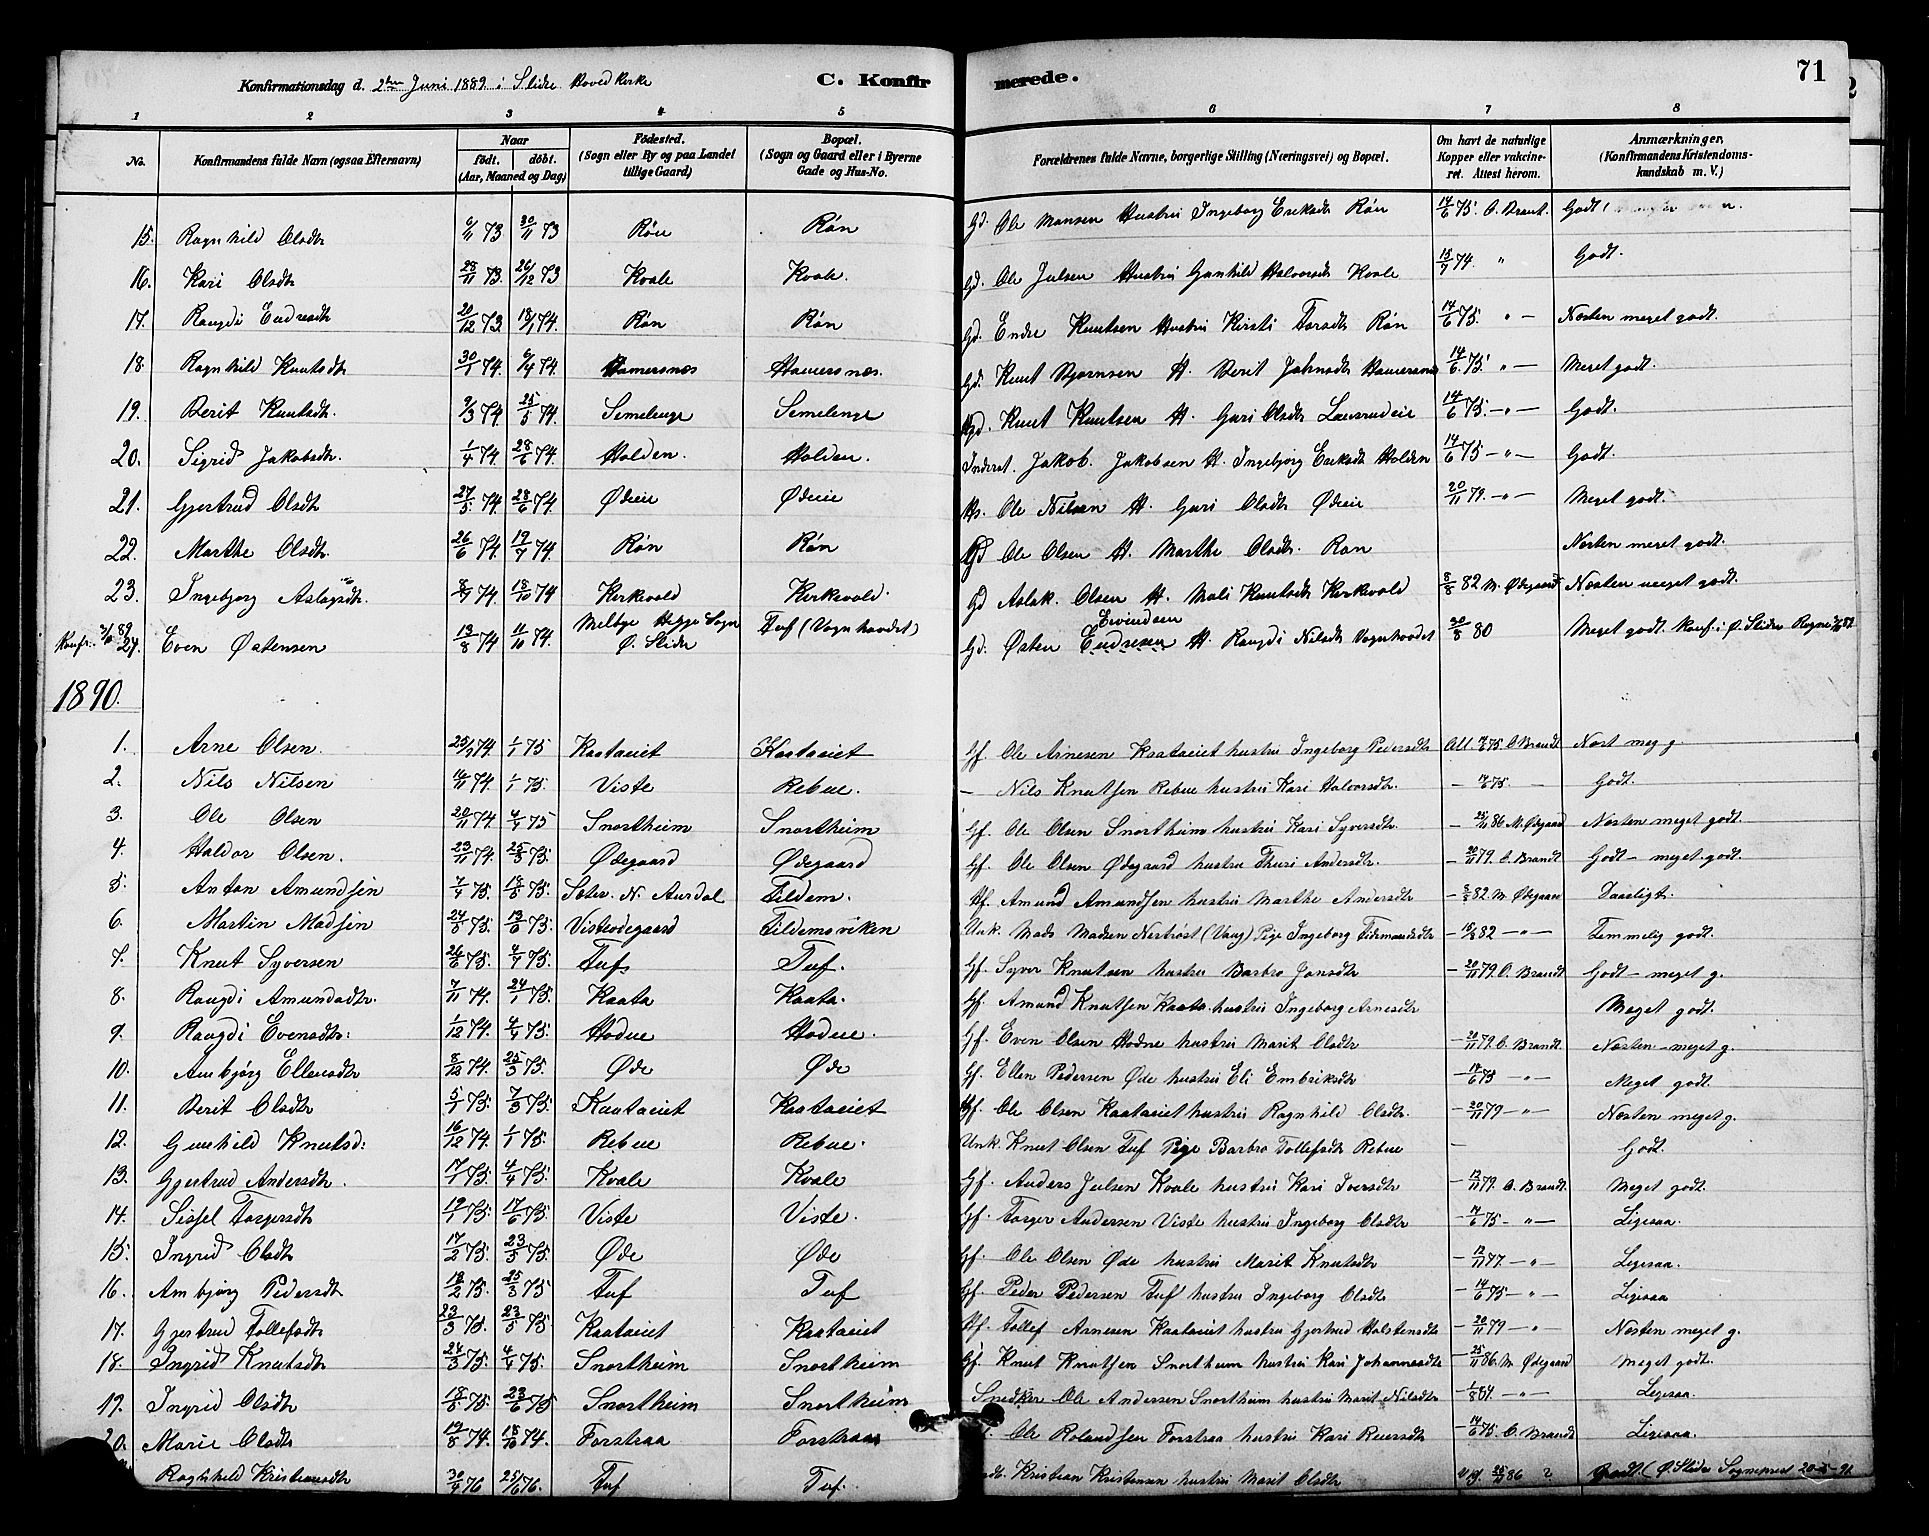 Konfirmationsdag d. 2den Juni 1889 i Slidre Hovedkirke C. Konfirmerede. 71
1 2 3 4 5 6 7 8
No. Konfirmandens fulde Navn (ogsaa Efternavn) Naar födt. döbt. (Aar, Maaned og Dag) Födested. (Sogn eller By og paa Landet tillige Gaard) Bopæl. (Sogn og Gaard eller i Byerne Gade og Hus-No. Forældrenes fulde Navne, borgerlige Stilling (Næringsvei) og Bopæl. Om havt de naturlige Kopper eller vakcineret. Attest herom. Anmærkninger, (Konfirmandens Kristendomskundskab m. V.)
15. Ragnhild Olsdtr 6/11 73 30/11 73 Røn Røn Gd. Ole Hansen Hustru Ingeborg Eriksdtr Røn 14/6 75. C. Brant. Godt
16. Kari Olsdtr 28/11 73. 26/12 73 Kvale Kvale. Gd. Ole Julsen Hustru Gunhild Halvorsdtr Kvale 13/7 74. " Godt.
17. Raugdi Endresdtr 20/12 73. 18/1 74. Røn Røn Gd. Endre Knutsen Hustru Kirsti Torsdtr Røn 14/6 75. " — Næsten meget godt.
18. Ragnhild Knutsdtr 30/1 74. 6/4 74. Hamersnæs Hamersnæs. Gd. Knut Bjørnsen H. Berit Johnsdtr Hamersnæs 14/6 75. " — Meget godt.
19. Berit Knutsdtr. 9/3 74. 25/5 74. Semelenge Semelenge Hgd. Knut Knutsen H. Guri Olsdtr 14/6 75. — " — Godt.
20. Sigrid Jakobsdtr. 1/4 74. 28/6 74. Holden. Holden. Inderst. Jakob Jakobsen H. Ingebjørg Eriksdtr Holden 14/6 75 — " — Godt.
21. Gjertrud Olsdtr 27/5. 74 28/6 74. Ødeie Ødeie Hs. Ole Nilsen H. Guri Olsdtr Ødeie 20/11 79. — " — Meget godt.
22. Marthe Olsdtr. 26/6 74. 19/7 74. Røn Røn Gd Ole Olsen H. Marthe Olsdtr. Røn Næsten meget godt.
23. Ingebjørg Aslagsdtr. 8/9 74. 18/10 74 Kirkevold Kirkevold. Gd Aslak Olsen H. Mali Knutsdtr Kirkevold 8/8 82 M. Ødegaard Næsten meget godt.
Konfr. 2/6 89 24. Even Østensen 13/8 74 11/10 74. Melbye Hegge Sogn Ø. Slidre Tuf (Vognhoodet) Gd. Østen Endresen Eivindsen H. Raugdi Nilsdtr Vognhoodet 30/8 80 Meget godt. Konf. i Ø. Slidre
1890.
1. Arne Olsen. 25/9 74. 1/1 75 Kaataeiet Kaataeiet Gf. Ole Arnesen Kaataeiet hustru Ingeborg Pedersdtr Att. 14/6 75 C. Brandt Næst meg g.
2. Nils Nilsen 16/11 74. 1/1 75. Viste Rebne. — Nils Knutsen Rebne hustru Kari Halvorsdtr. — 14/6 75. — Godt.
3. Ole Olsen 20/11 74. 4/4 75 Snortheim Snortheim Gf. Ole Olsen Snortheim hustru Kari Syversdtr. — 25/11 86 M. Ødegaard Næsten meget godt.
4. Haldor Olsen. 23/11 74. 25/3 75. Ødegaard Ødegaard Gf. Ole Olsen Ødegaard hustru Thuri Andersdtr. — 20/11 79. C. Brandt Godt — meget godt.
5. Anton Amundsen 7/4 75. 18/5 75. Sæter. N. Aurdal Fildem. Hf. Amund Amundsen hustru Marthe Andersdtr — 8/8 82 M. Ødegaard Daarligt.
6. Martin Madsen 24/5 75. 13/6 75. Visteødegaard Fildemsviken Unk. Mads Madsen Nertrøst (Vang) Pige Ingeborg — 82 — " — Temmelig godt.
7. Knut Syversen 26/6 75. 4/7 75. Tuf Tuf. Gf. Syver Knutsen hustru Barbro Jonsdtr — 20/11 79. C. Brandt Godt — meget g.
8. Raugdi Amundsdtr. 7/11 74. 24/1 75. Kaata Kaata. Gf. Amund Knutsen Kaata hustru Ingeborg Arnesdtr Meget godt.
9. Raugdi Evensdtr: 1/12 74. 4/4 75. Hodne Hodne. Gf. Even Olsen Hodne hustru Marit Olsdtr — 20/11 79. C. Brandt Næsten — meget g.
10. Ambjørg Ellensdtr 8/12 74. 25/3 75. Øde Øde Gf. Ellen Pedersen Øde hustru Eli Embriksdtr — 14/6 75 — " — Meget godt.
11. Berit Olsdtr 5/1 75. 7/3 75. Kaataeiet Kaataeiet Hf. Ole Olsen Kaataeiet hustru Ragnhild Olsdtr. — 20/11 79 — " — Næsten meget g.
12. Gunhild Knutsd: 16/12 74. 1/1 75. Rebne Rebne. Unk. Knut Olsen Tuf Pige Barbro Tollefsdtr Rebne — Godt.
13. Gjertrud Andersdtr. 17/1 75. 4/4 75. Kvale Kvale Gf. Anders Julsen Kvale hustru Kari Iversdtr — 12/11 79. C. Brandt. Meget godt.
14. Sissel Torgersdtr 19/1 75. 17/6 75. Viste Viste. Gf. Torger Andersen Viste hustru Ingeborg Olsdtr — 14/6 75 — " — Ligesaa.
15. Ingrid Olsdtr 17/2 75. 23/5 75. Øde Øde Gf. Ole Olsen Øde hustru Marit Knutsdtr — 12/11 77. — " — Ligesaa.
16. Ambjørg Pedersdtr 18/2 75. 25/3 75 Tuf Tuf Gf. Peder Pedersen Tuf hustru Ingeborg Olsdtr — 14/6 75 — " — Ligesaa
17. Gjertrud Tollefsdtr 23/3 75. 23/5 75. Kaataeiet Kaataeiet Hf. Tollef Arnesen Kaataeiet hustru Gjertrud Holstensdtr — 20/11 79 — " — Næsten meget g.
18. Ingrid Knutsdtr 24/3 75. 4/4 75. Snortheim Snortheim Gf. Knut Knutsen Snortheim hustru Kari Johannesdtr — 25/11 86. M. Ødegaard Meget godt.
19. Ingrid Olsdtr 18/5 75. 23/6 75 Snortheim Snortheim Snedker Ole Andersen Snortheim hustru Marit Nilsdtr — 1/8 87. — " — Ligesaa.
20. Marie Olsdtr 19/8 74. 18/10 74. Forstraa Forstraa Ole Rolandsen Forstraa hustru Kari Reiersdtr — 14/6 75. C. Brandt Ligesaa.
Ragnhild Kristiansdtr 30/4 76 25/6 76. Tuf Tuf. Kristian Kristensen hustru Marit Olsdtr 25/11 86 ? Godt. (Ø. Slidre Sognepræst 20-5-91